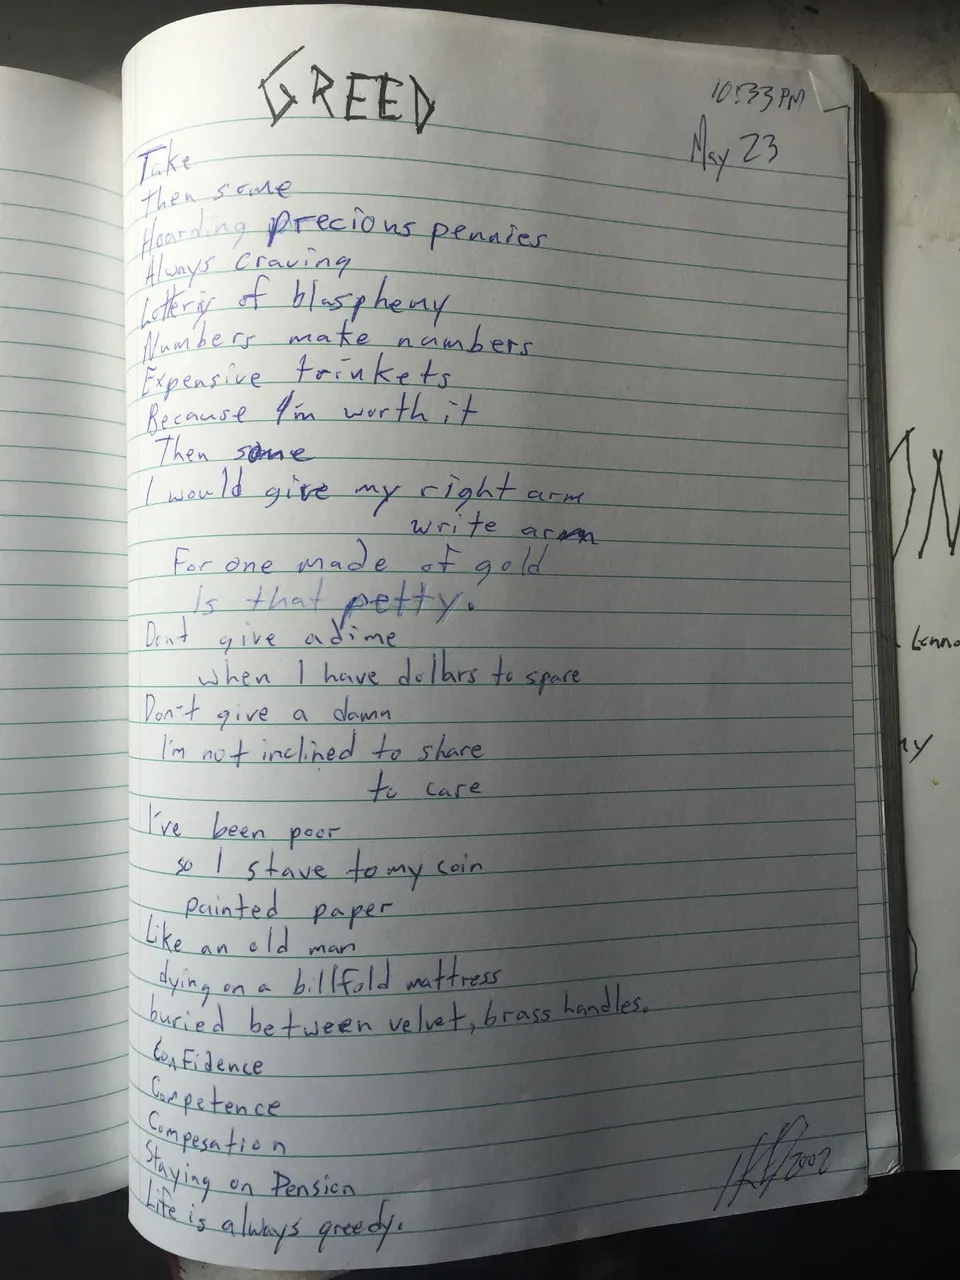 GREED
10:33 PM
May 23
Take
then some
Hoarding precious pennies
Always craving
Lottery of blasphemy
Numbers make numbers
Expensive trinkets
Because I'm worth it
Then some
I would give my right arm
write arm
For one made of gold
Is that petty.
Dont give a dime
when I have dollars to spare
Don't give a damn
I'm not inclined to share
to care
I've been poor
so I stave to my coin
painted paper
Like an old man
dying on a billfold mattress
buried between velvet, brass handles.
Confidence
Competence
Compesation
Staying on Pension
Life is always greedy.
2002